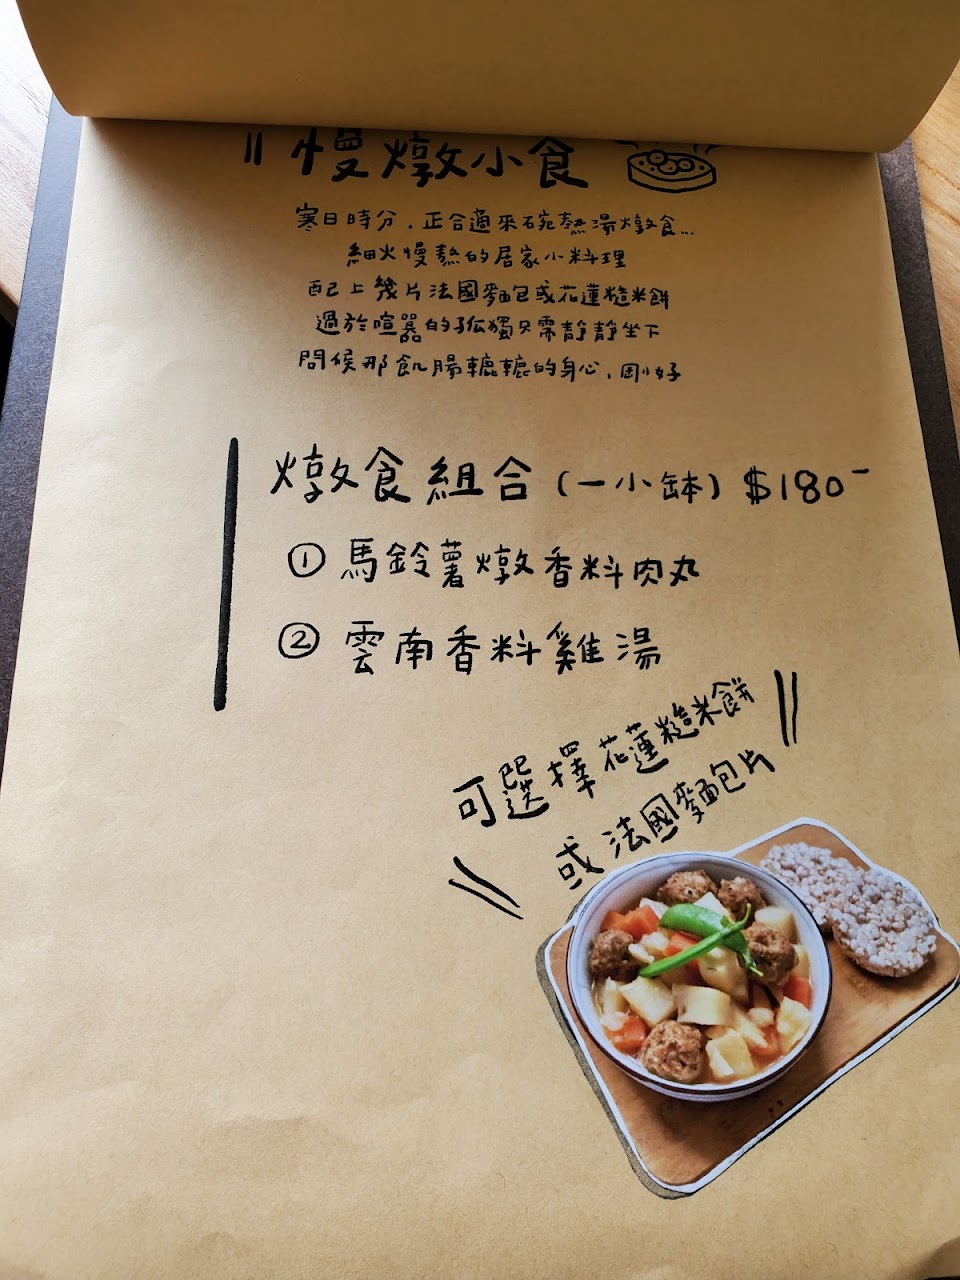 慢燉小食
寒日時分，正合適來碗熱湯燉食...
細火慢熬的居家小料理
配上幾片法國麵包或花蓮糙米餅
過於喧囂的孤獨只需靜靜坐下
問候那飢腸轆轆的身心，剛好
燉食組合（一小缽）$180-
① 馬鈴薯燉香料肉丸
② 雲南香料雞湯
可選擇花蓮糙米餅
或法國麵包片